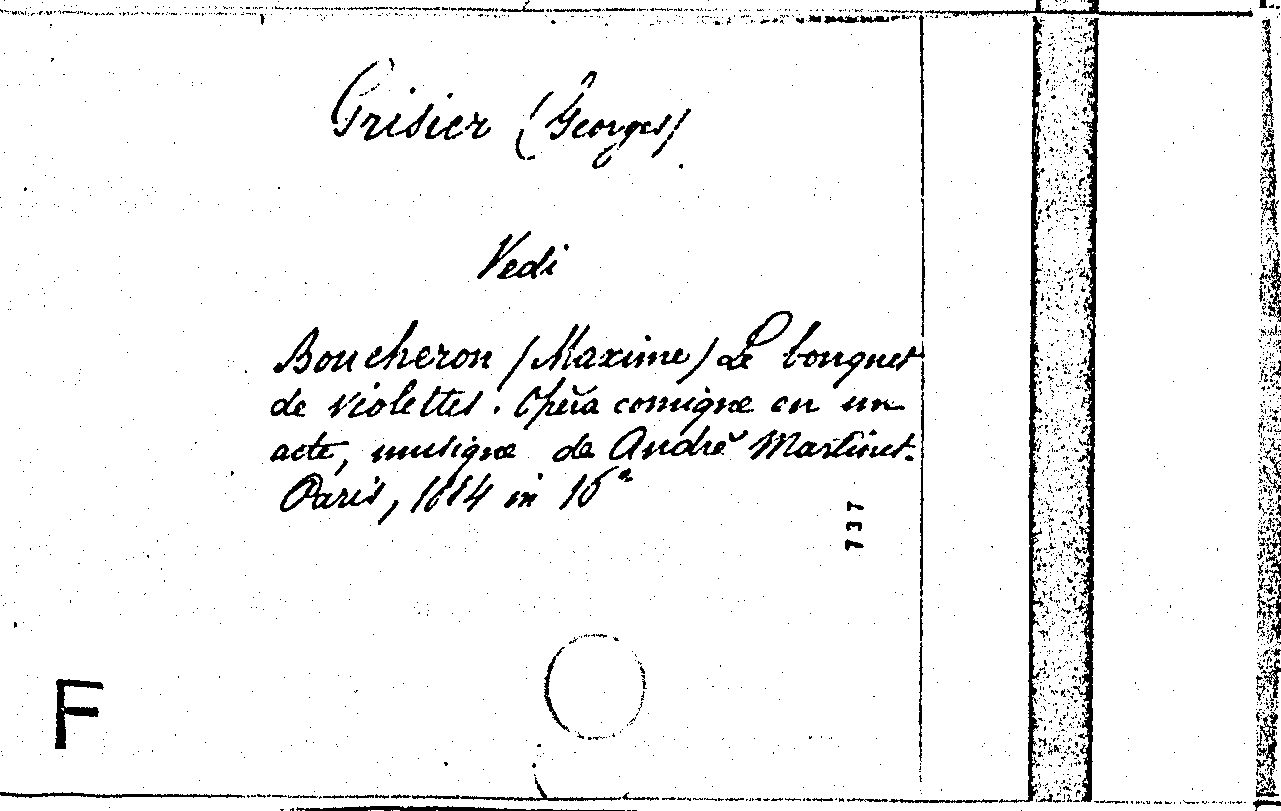 Grisier (Georges)
Vedi
Boucheron (Maxime) Le bouquet
de violettes. Opéra comique en un
acte, musique de André Martinet.
Paris, 1884 in 16°
737
F